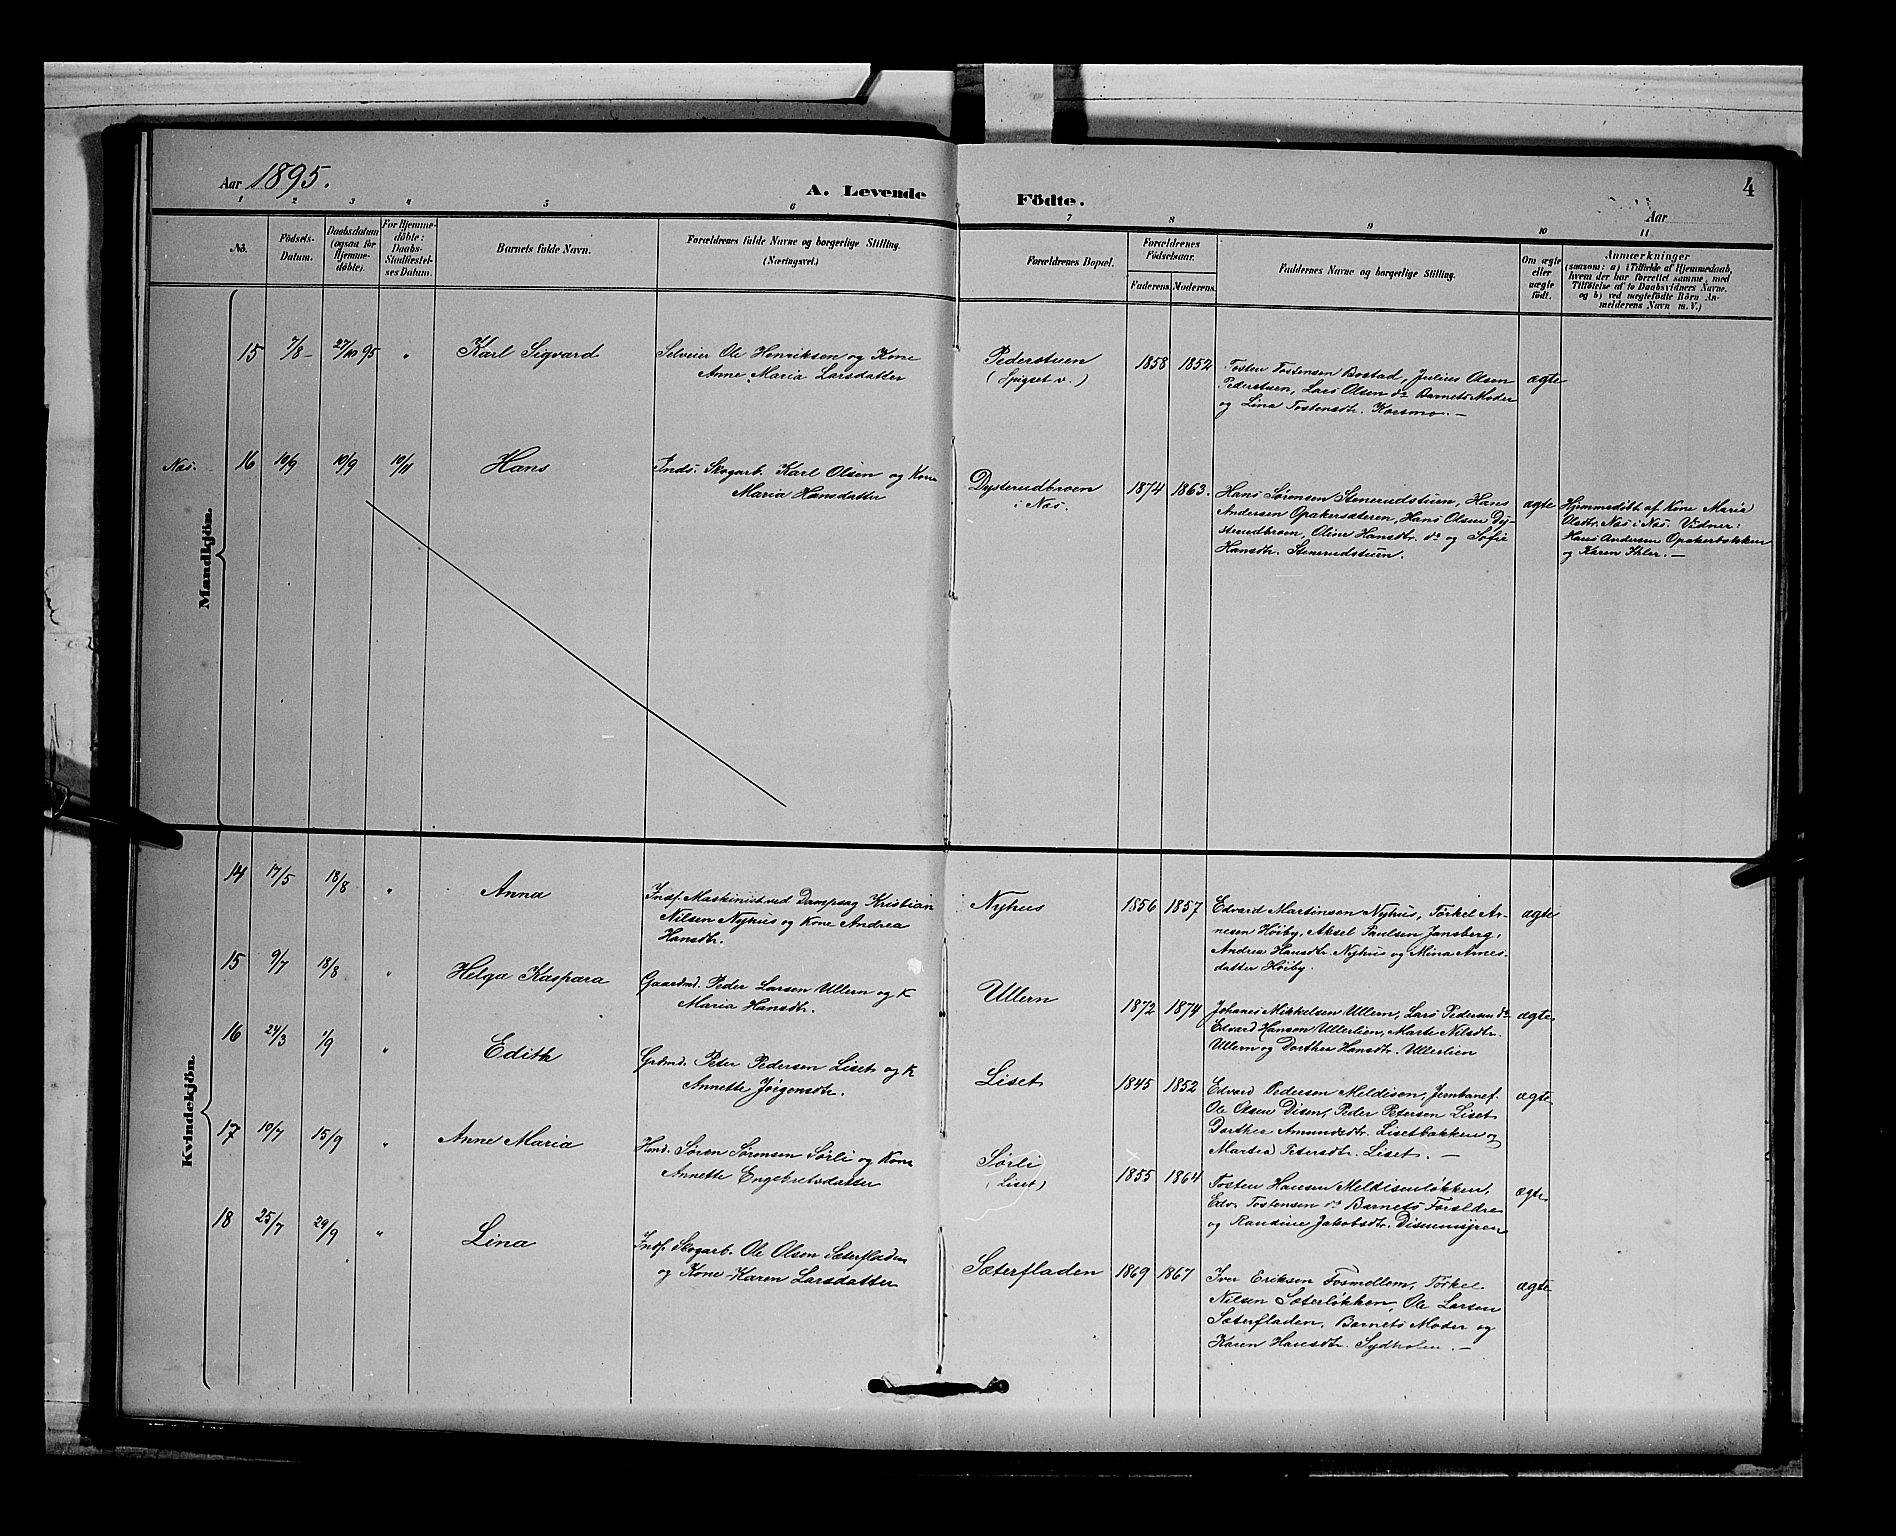 Aar 1895.
A. Levende Födte.
4
Aar
1 2 3 4 5 6 7 8 9 10 11
No.
Födsels-
Datum.
Daabsdatum
(ogsaa for
Hjemme-
döbte).
For Hjemme-
döbte:
Daabs-
Stadfæstel-
ses Datum.
Barnets fulde Navn.
Forældrenes fulde Navne og borgerlige Stilling.
(Næringsvei.)
Forældrenes Bopæl.
Forældrenes
Födselsaar.
Faderens. Moderens.
Faddernes Navne og borgerlige Stilling.
Om ægte
eller
uægte
født.
Anmærkninger
(saasom: a) i Tilfælde af Hjemmedaab,
hvem der har forrettet samme, med
Tilföielse af to Daabsvidners Navne.
og b) ved uægtefödte Börn An-
melderens Navn m. V.)
Mandkjön.
15 7/8 - 27/10 95 " Karl Sigvard
Selveier Ole Henriksen og Kone
Anne Maria Larsdatter
Pederstuen
(Spigset v.)
1858 1852
Tosten Tostensen Bostad, Julius Olsen
Pederstuen, Lars Olsen do Barnets Moder
og Lina Tostensdtr. Korsmo. —
ægte
Nes. 16 10/9 10/9 10/11 Hans
Inds. Skogarb. Karl Olsen og Kone
Maria Hansdatter
Dysterudbroen
i Nes.
1874 1863.
Hans Sørensen Stenerudstuen, Hans
Andersen Opakersæteren, Hans Olsen Dy-
sterudbroen, Oline Hansdtr. do og Sofie
Hansdtr. Stenerudstuen.
ægte
Hjemmedøbt af Kone Maria
Olsdtr. Nes i Nes. Vidner:
Hans Andersen Opakerbakken
og Karen Ihler. —
Kvindekjön.
14 17/5 18/8 " Anna
Indf. Maskinist ved Dampsag Kristian
Nilsen Nyhus og Kone Andrea
Hansdtr.
Nyhus
1856 1857
Edvard Martinsen Nyhus, Torkel Ar-
nesen Høiby, Aksel Paulsen Jansberg,
Andrea Hansdtr. Nyhus og Mina Arnes-
datter Høiby.
ægte
15 9/7 18/8 " Helga Kaspara
Gaardmd. Peder Larsen Ullern og K
Maria Hansdtr.
Ullern
1872 1874
Johanes Mikkelsen Ullern, Lars Pedersen do
Edvard Hansen Ullerlien, Marte Nilsdtr.
Ullern og Dorthea Hansdtr. Ullerlien
ægte
16 24/3 1/9 " Edith
Grdmd. Peter Pedersen Liset og K
Annette Jørgensdtr.
Liset
1845 1852
Edvard Pedersen Meldisen, Jernbanef.
Ole Olsen Disen, Peder Petersen Liset
Dorthea Amundsdtr. Lisetbakken og
Martea Petersdtr. Liset. —
ægte
17 10/7 15/9 " Anne Maria
Hmd. Søren Sørensen Sørli og Kone
Annette Engebretsdatter
Sørli
(Liset)
1855 1864
Tosten Hansen Meldisenløkken,
Edv. Tostensen do Barnets Forældre
og Randine Jakobsdtr. Disenmyren
ægte
18 25/7 29/9 " Lina
Indf. Skogarb. Ole Olsen Sæterfladen
og Kone Karen Larsdatter
Sæterfladen
1869 1867
Iver Eriksen Fosmellem, Torkel
Nilsen Sæterløkken, Ole Larsen
Sæterfladen, Barnets Moder og
Karen Hansdtr. Sydholen. —
ægte